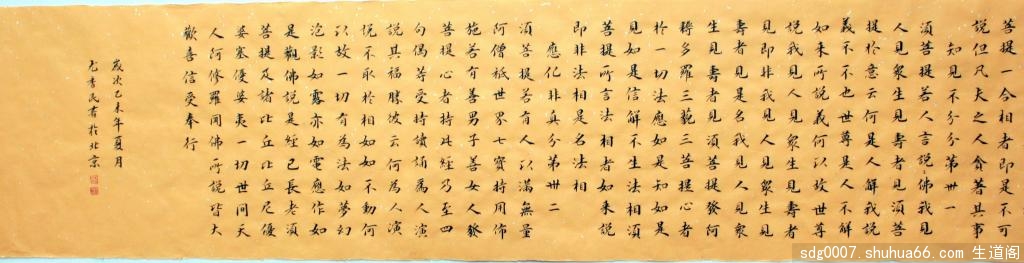 菩提一合相者即是不可
說但凡夫之人貪著其事
知見不生分第卅一
須菩提若人言說佛我見
人見衆生見壽者見須菩
提於意云何是人解我說
義不不也世尊是人不解
如來所說義何以故世尊
說我見人見衆生見壽者
見即非我見人見衆生見
壽者見是名我見人見衆
生見壽者見須菩提發阿
耨多羅三藐三菩提心者
於一切法應如是知如是
見如是信解不生法相須
菩提所言法相者如來說
即非法相是名法相
應化非真分第卅二
須菩提若有人以滿無量
阿僧祇世界七寶持用佈
施若有善男子善女人發
菩提心者持此經乃至四
句偈等受持讀誦為人演
說其福勝彼云何為人演
說不取於相如如不動何
以故一切有為法如夢幻
泡影如露亦如電應作如
是觀佛說是經已長老須
菩提及諸比丘比丘尼優
婆塞優婆夷一切世間天
人阿修羅聞佛所說皆大
歡喜信受奉行
歲次乙未年夏月
民書於北京
sdg0007.shuhua66.com 生道阁